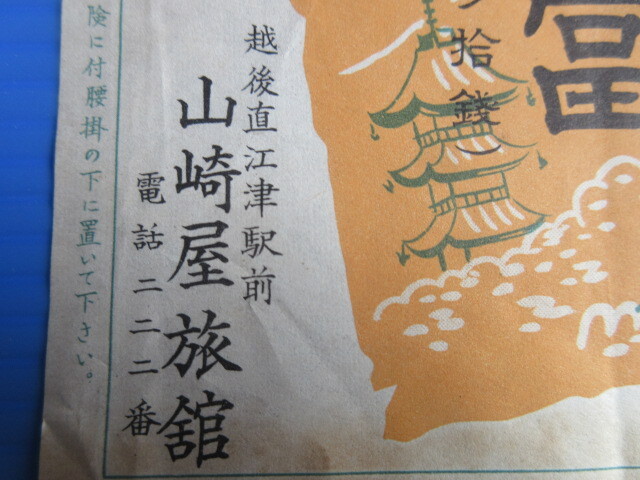 富
拾錢
越後直江津駅前
山崎屋旅舘
電話二二二番
険に付腰掛の下に置いて下さい。